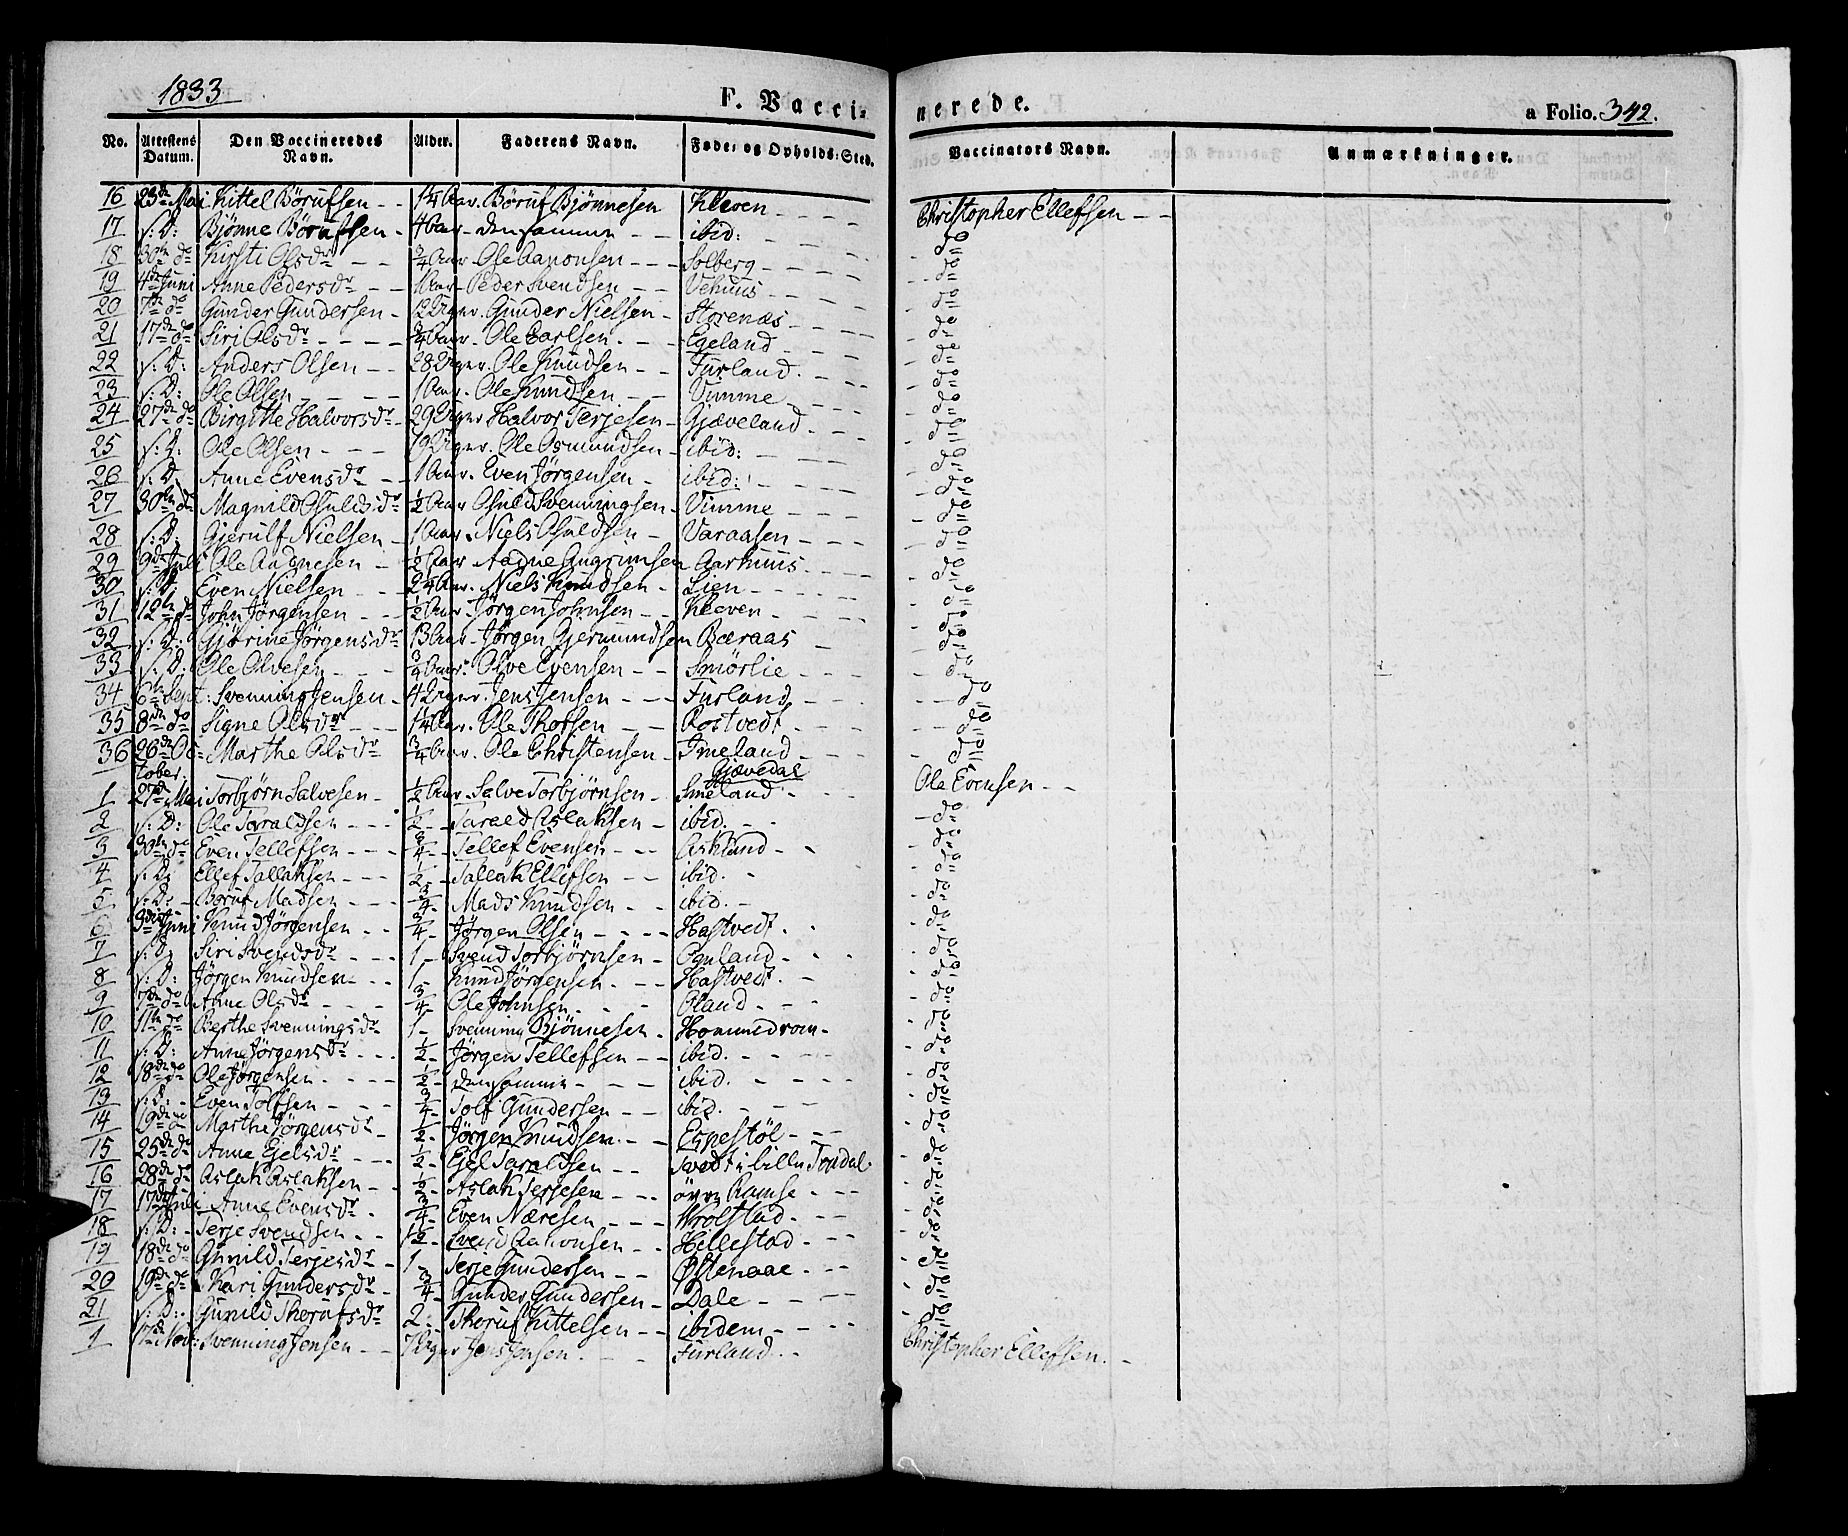 1833
F. Vaccinerede. a Folio. 342.
No. Attestens Datum. Den Vaccineredes Navn. Alder. Faderens Navn. Føde- og Opholds-Sted. Vaccinators Navn. Anmærkninger.
16 23de Mai Kittel Börufsen - - 14 Aar. Böruf Bjönnesen Kleven - - - - Christopher Ellefsen - -
17 s: D: Bjönne Börufsen - 4 Aar - den samme - - ibid: - - - - do
18 30te do Kirsti Olsdr - - 3/4 Aar Ole Aanonsen - - - Solberg - - - - do
19 4de Juni Anne Pedersdr - - 1 Aar - Peder Svendsen - - Vehuus - - - do
20 7de do Gunder Gundersen - 12 Uger. Gunder Nielsen - Storenæs - - - do
21 17de do Siri Olsdr - - - - 3/4 Aar - Ole Carlsen. - - Egeland - - - do
22 s: D: Anders Olsen - - 28 Uger. Ole Knudsen - - Furland. - - - do
23 s: D: Ole Olsen - - - - 1 Aar. Ole Knudsen - - Vimme - - - do
24 27de do Birgithe Halvorsdr - 29 Uger Halvor Terjesen - Gjæveland - - - do
25 s: D: Ole Olsen - - - 19 Uger. Ole Osmundsen - ibid: - - - do
26 s: D: Anne Evensdr - - 1 Aar. Even Jörgensen - ibid: - - - do
27 30te do Magnild Osuldsdr 1/2 Aar Osuld Svenningsen - Vimme - - - do
28 s: D: Gjerulf Nielsen - 1 Aar. Niels Osuldsen - Varaasen - - - do
29 9de Juli Ole Aadnesen - - 1/2 Aar Aadne Aagrimsen Aarhuus - - - do
30 s: D: Even Nielsen - - - 24 Aar. Niels Knudsen - Lien - - - - do
31 12te do John Jörgensen - - 1/2 Aar. Jörgen Johnsen - - Kleven - - - do
32 s: D: Gjörine Jörgensdr 13 Aar - Jörgen Gjermundsen Bæraas - do
33 s: D: Ole Olvesen - - - 3/4 Aar. Olve Evensen - - Smörlie - - - do
34 6te Sept: Svenning Jensen - 42 Uger. Jens Jensen - - - Furland - - - do
35 8de do Signe Olsdr - - 14 Aar. Ole Thorsen - - Rostvedt - - - do
36 26de October. Marthe Olsdr 3/4 Aar. Ole Christensen - Imeland - - - do
Gjævedal
1 27de Mai Torbjörn Salvesen - 1/2 Aar - Salve Torbjörnsen - Smeland - - - Ole Evensen - -
2 s: D: Ole Taraldsen - - - 1/2 - - Tarald Aslaksen - ibid. - - do
3 30te do Even Tellefsen - - - 3/4 - Tellef Evensen - - Askland - - do
4 s: D: Ellef Tallaksen - - - 1/2 - Tallak Ellefsen - - ibid. - do
5 s: D: - Böruf Madsen - - 3/4 - Mads Knudsen - - ibid. - do
6 3de Juni Knud Jörgensen - - 3/4 - Jörgen Olsen - - - - Hastvedt - - do
7 s: D: Siri Svendsdr - - 1 - Svend Torbjörnsen - Oguland - - - do
8 s: D: Jörgen Knudsen - - - 1 Knud Jörgensen - - - Hastvedt - - do
9 7de do Anne Olsdr - - - 3/4 Ole Johnsen - - - Oland - - - do
10 11te do Berthe Svenningsdr 1 - Svenning Bjönnesen - Hommedrom - do
11 s: D: Anne Jörgensdr - - - 1/2 - Jörgen Tellefsen - - ibid. - - - do
12 18de do Ole Jörgensen. - - - - 1/2 - den samme - - - ibid. - - - - do
13 s: D: - Even Tolfsen - - - 3/4 - Tolf Gundersen - - ibid. - - - do
14 19de do Marthe Jörgensdr - 1/2 - Jörgen Knudsen. - - Espestöl - - - do
15 25de do Anne Ejelsdr - - - 1/2 - Ejel Taraldsen - - Tvedt i lille Tovdal - do
16 28de do Aslak Aslaksen - - 1/2 - Aslak Terjesen - - - övre Ramse - - - do
17 17de Juli Anne Evensdr - 3/4 - Even Næresen - - - Wrolstad - - - do
18 s: D: - Terje Svendsen - - 1 1/2 - Svend Aanonsen - - Hillestad - - - do
19 18de do Gunild Terjesdr - 1 - Terje Gundersen - - Østenaae - - - do
20 19de do Kari Gundersdr - 3/4 - Gunder Gundersen - Dale - - - do
21 s: D: Gunild Thorufsdr 2 - Thoruf Kittelsen - - ibidem - - - do
1 17de Nov: Svenning Jensen - - 7 Uger Jens Jensen. - - Furland. - - Christopher Ellefsen. -